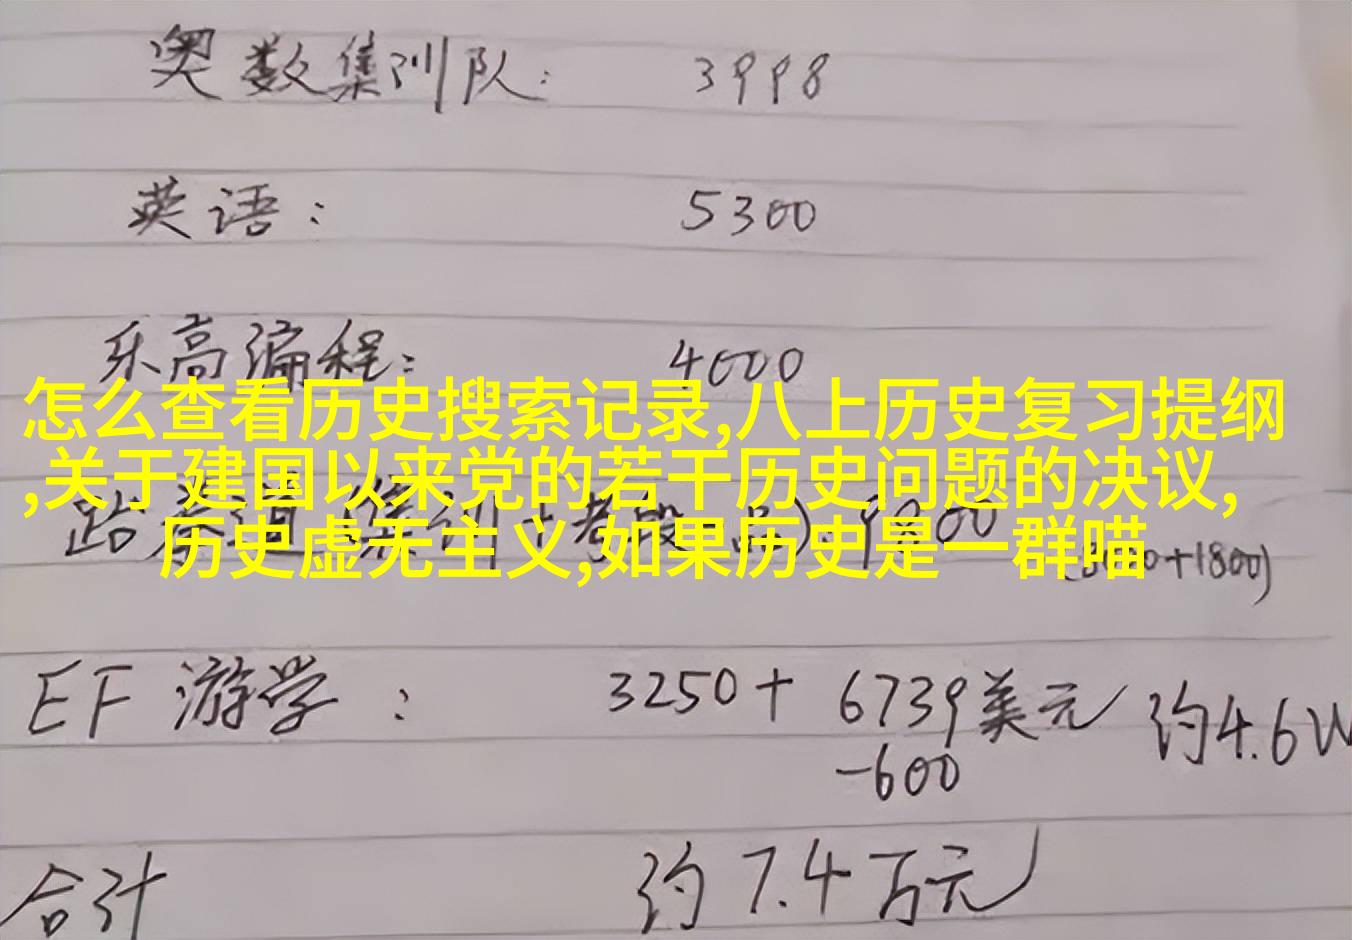 奥数集训队: 3998
英语: 5300
乐高编程: 4000
怎么查看历史搜索记录,八上历史复习提纲
,关于建国以来党的若干历史问题的决议,
跆拳道(集训+考段+品): 9800
历史虚无主义,如果历史是一群喵
+1800)
EF 游学: 3250+ 6739美元 约4.6W
-600
合计 约7.4万元